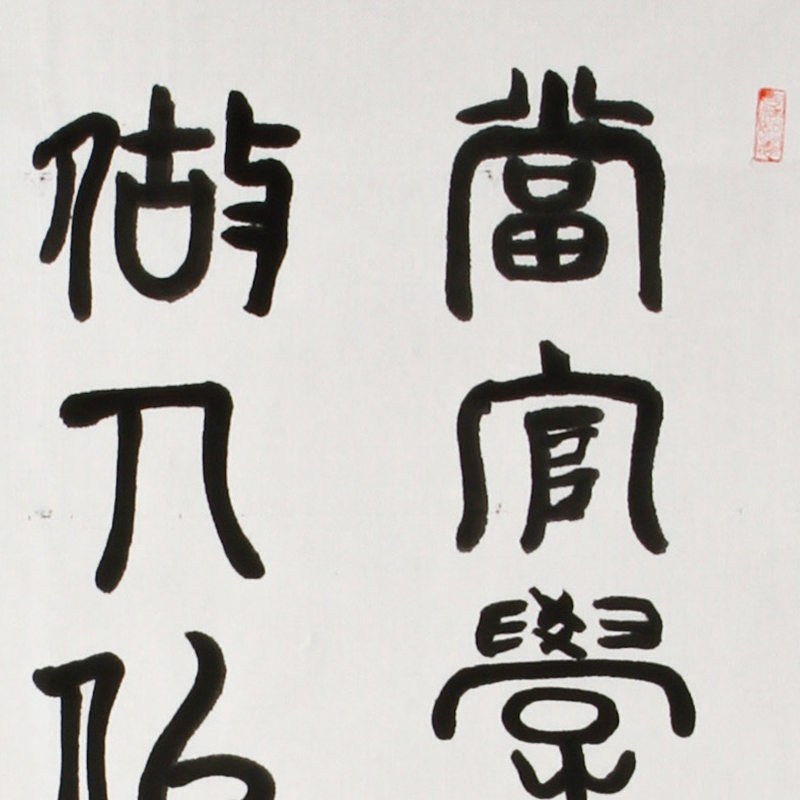 當官學
做人